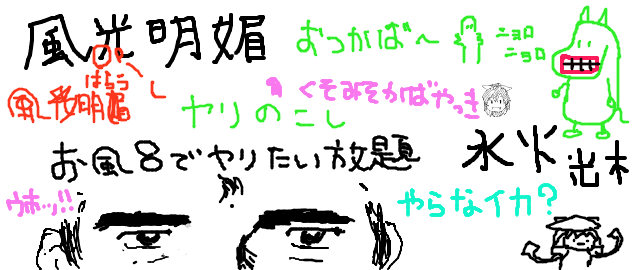 風光明媚
おつかば～
ニョロ
ニョロ
はらつ
し
風光明媚
ヤリのこし
くそみそかばやっき
お風8でヤリたい放題
水火
出木
ウホッ!!
やらなイカ?